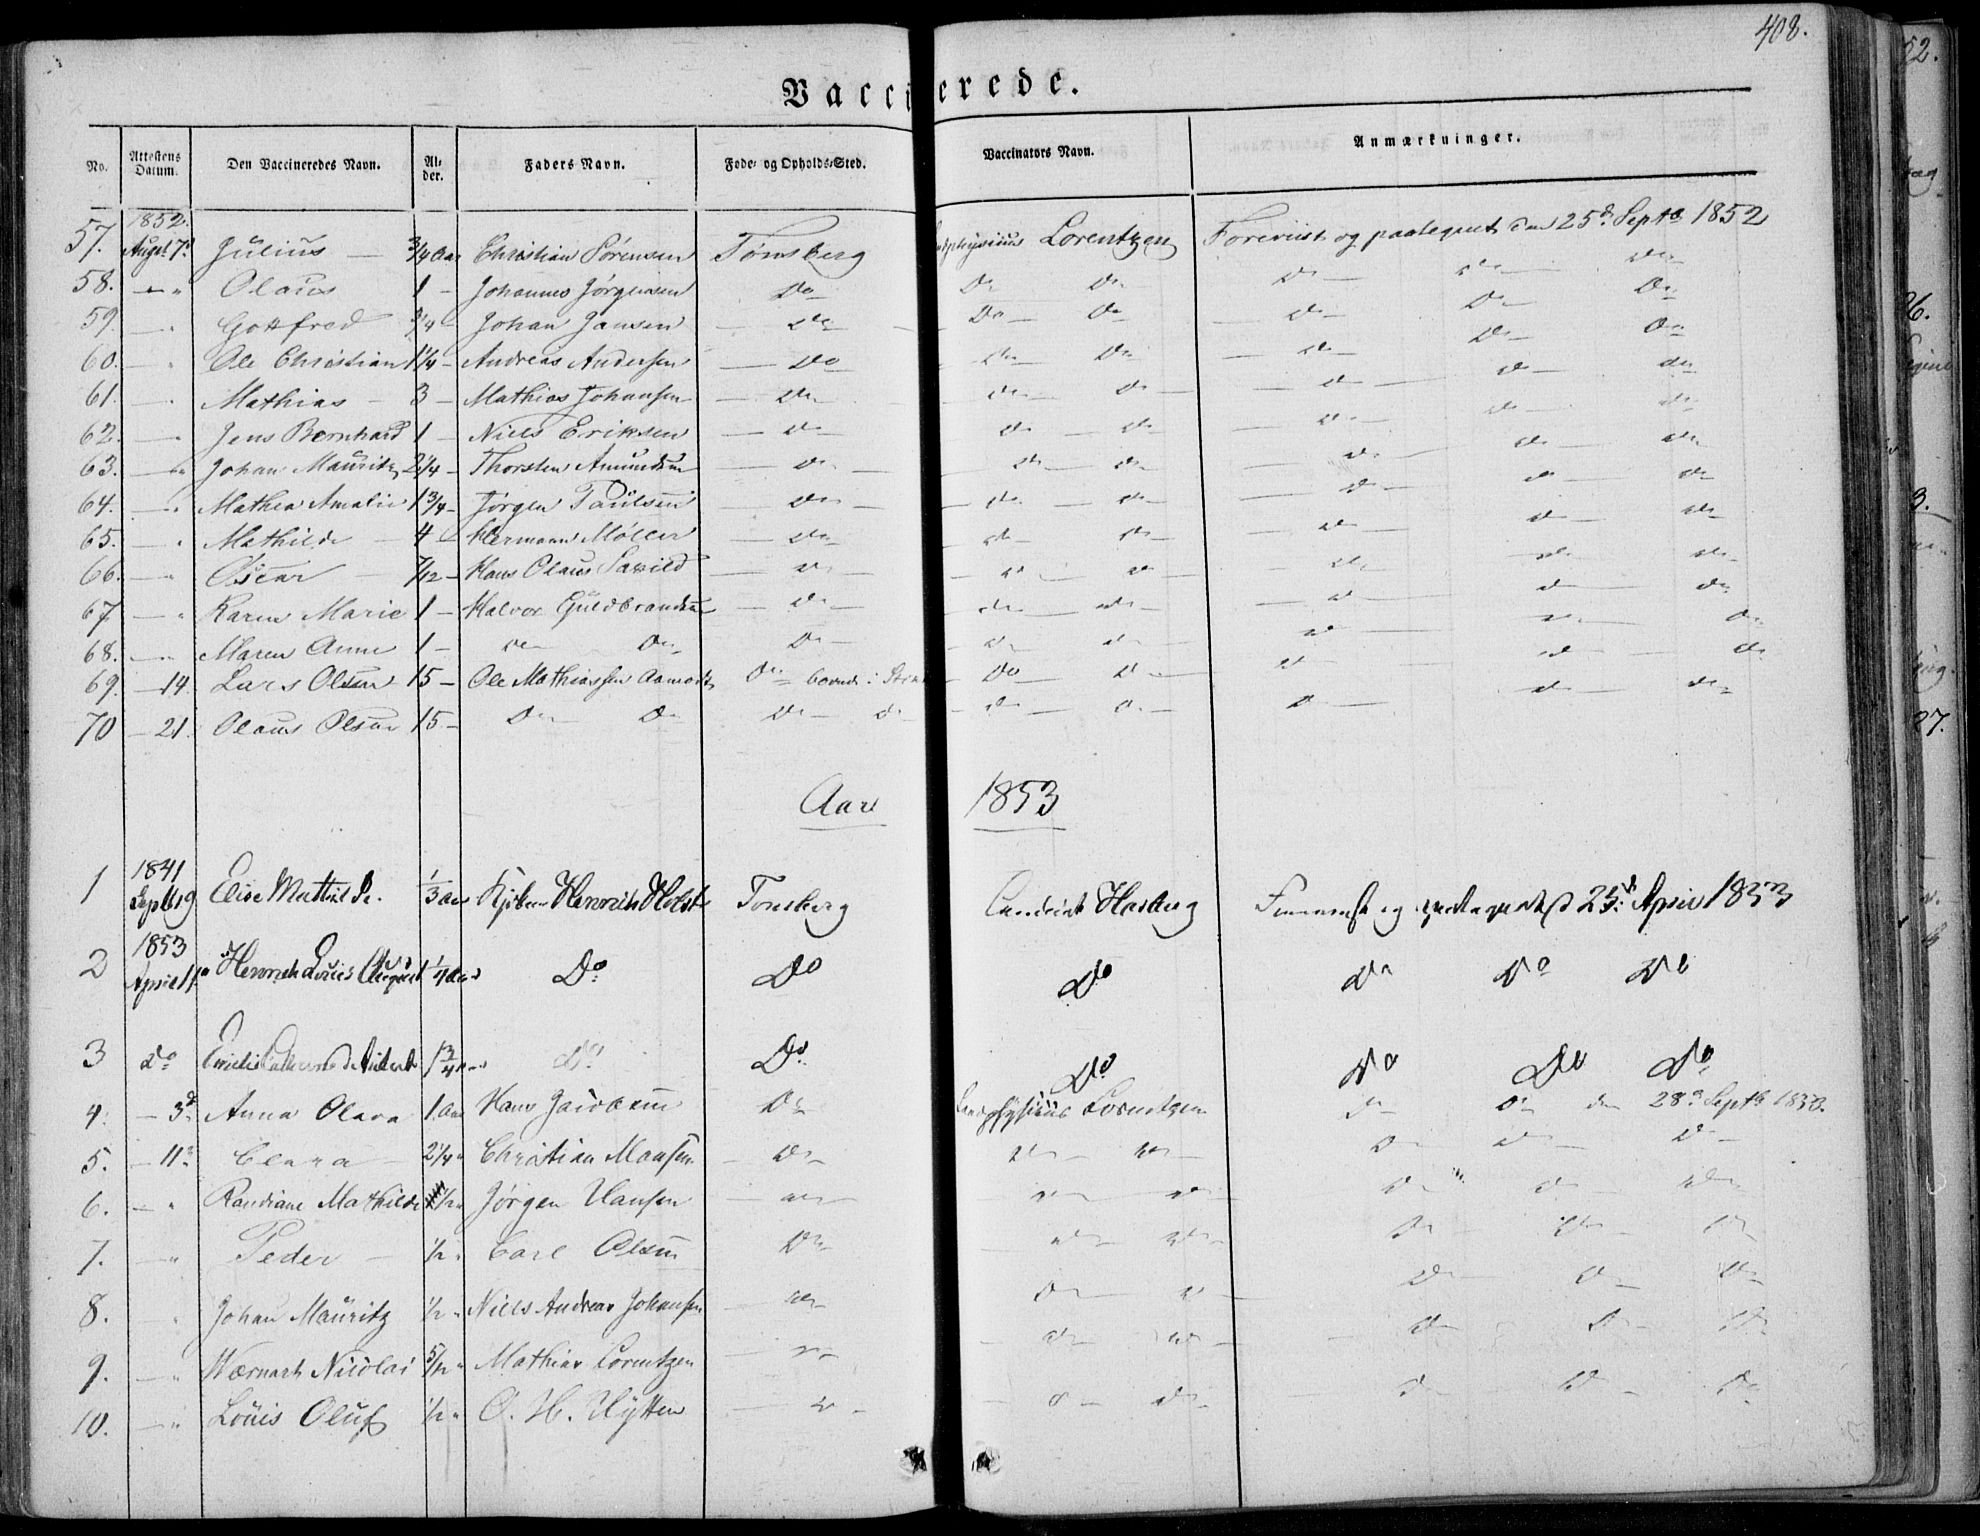 408.
Vaccinerede.
No. Attestens Datum. Den Vaccineredes Navn. Al-der. Faders Navn. Føde- og Opholds-Sted. Vaccinators Navn. Anmærkninger.
1852.
57. Augst 7d Julius — 3/4 Aar Christian Sørensen Tønsberg Lorentzen Foreviist og paategnet den 25d Septb 1852
58. — " Olaus 1 — Johannes Jørgensen Do Do Do Do Do Do
59. — " Gottfred 3/4 — Johan Jansen — Do — Do — Do Do Do Do
60. — " Ole Christian 1 1/4 — Andreas Andersen — Do — Do Do — Do Do Do
61. — " Mathias — 3 — Mathias Johansen — Do — Do Do — Do Do Do
62. — " Jens Bernhard 1 — Niels Eriksen — Do — Do — Do — Do Do Do
63. — " Johan Mauritz 2 1/4 — Thorsten Amundsen — Do — Do — Do — Do Do Do
64. — " Mathea Amalie 1 3/4 — Jørgen Paulsen — Do — Do — Do — Do Do Do
65. — " Mathilde — 4 — Hermann Møller — Do — Do Do — Do Do Do
66. — " Oscar — 7/12 — Hans Olaus Saxild — Do — Do — Do — Do Do Do
67 — " Karen Marie 1 — Halvor Guldbrandsen — Do — Do — Do — Do Do Do
68. — " Maren Anne 1 — Do Do Do — Do Do — Do Do Do
69. — 14. Lars Olsen 15 — Ole Mathiassen Aamodt Do boende i — Do Do — Do Do Do
70 — 21. Olaus Olsen 15 — Do Do Do — Do — Do — Do — Do Do Do
Aar 1853
1841
1 Septb 9 Elise Mathilde. 1/3 Aar Kjøbm Henrich Holst Tønsberg Candidat Hasberg og 25d April 1853
1853
2 April 1 Henrich Louis August 1/4 Aar Do Do Do Do Do Do
3 Do 1 3/4 Aar Do Do Do Do Do Do
4. — 3d Anna Olava 1 Aar Hans Jacobsen Do Landphysicus Lorentzen Do Do den 28d Septb 1853.
5. — 11d Clara — 2 1/4 " Christian Monsen — Do — Do — Do — Do Do — Do —
6. — " Randiane Mathilde 1/2 " Jørgen Hansen — Do — Do — Do — Do Do Do
7. — " Peder — 1/2 " Carl Olsen Do — Do Do — Do — Do — Do
8. " Johan Mauritz 1/2 " Niels Andreas Johansen — Do Do — Do — Do Do — Do
9. — " Wærnart Nicolai 5/12 " Mathias Lorentzen — Do — Do — Do — Do Do — Do
10. — " Louis Oluf 1/2 " O. H. Hytten — Do — Do — Do — Do Do — Do